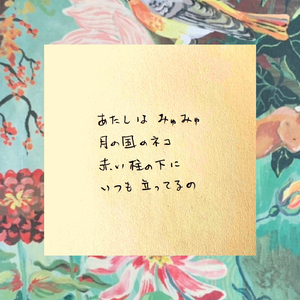 あたしは みゅみゅ
月の国のネコ
赤い柱の下に
いつも 立ってるの